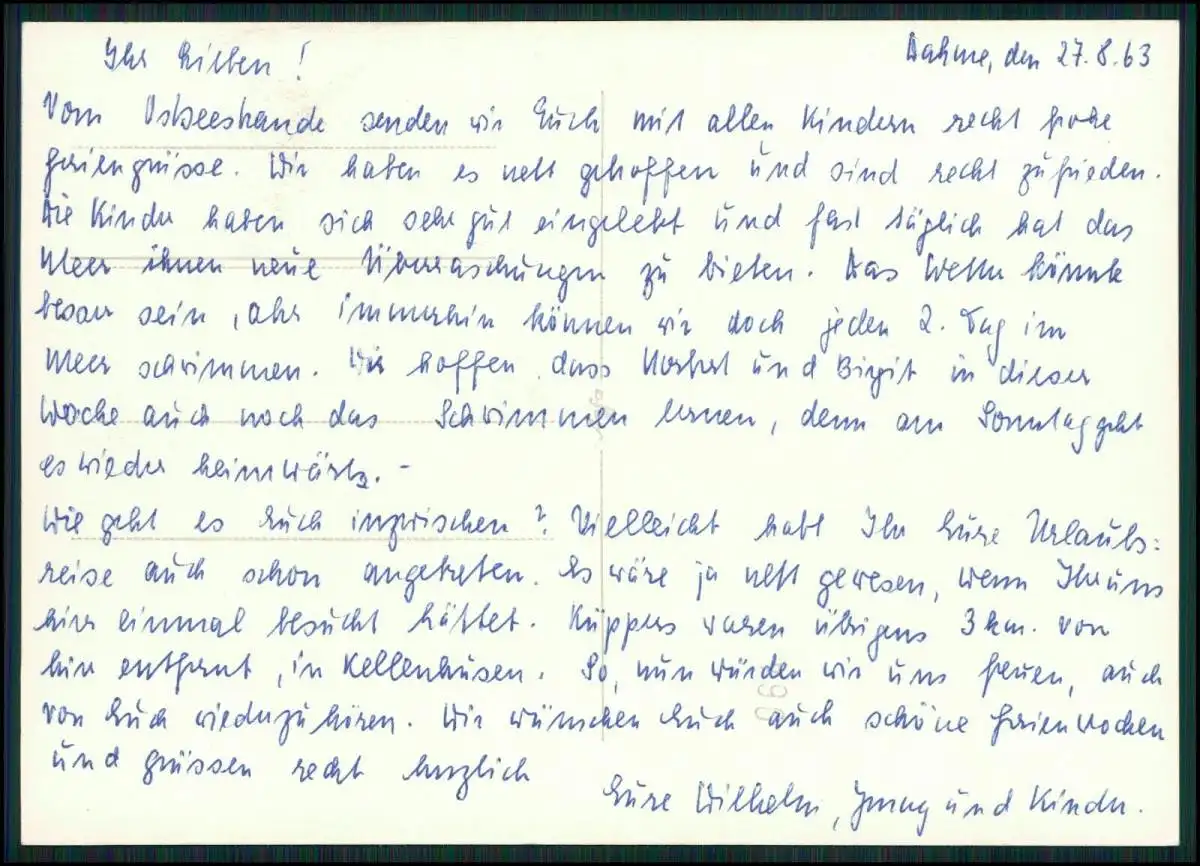 Dahme, den 27.8.63
Ihr Lieben!
Vom Ostseestrande senden wir Euch mit allen Kindern recht frohe
Feriengrüsse. Wir haben es nett getroffen und sind recht zufrieden.
Die Kinder haben sich sehr gut eingelebt und fast täglich hat das
Meer ihnen neue Überraschungen zu bieten. Das Wetter könnte
besser sein, aber immerhin können wir doch jeden 2. Tag im
Meer schwimmen. Wir hoffen, dass Norbert und Birgit in dieser
Woche auch noch das Schwimmen lernen, denn am Sonntag geht
es wieder heimwärts. -
Wie geht es Euch inzwischen? Vielleicht habt Ihr Eure Urlaubs=
reise auch schon angetreten. Es wäre ja nett gewesen, wenn Ihr uns
hier einmal besucht hättet. Küppers waren übrigens 3 km. von
hier entfernt, in Kellenhusen. So, nun würden wir uns freuen, auch
von Euch wiederzuhören. Wir wünschen Euch auch schöne Ferienwochen
und grüssen recht herzlich
Eure Wilhelm, und Kinder.